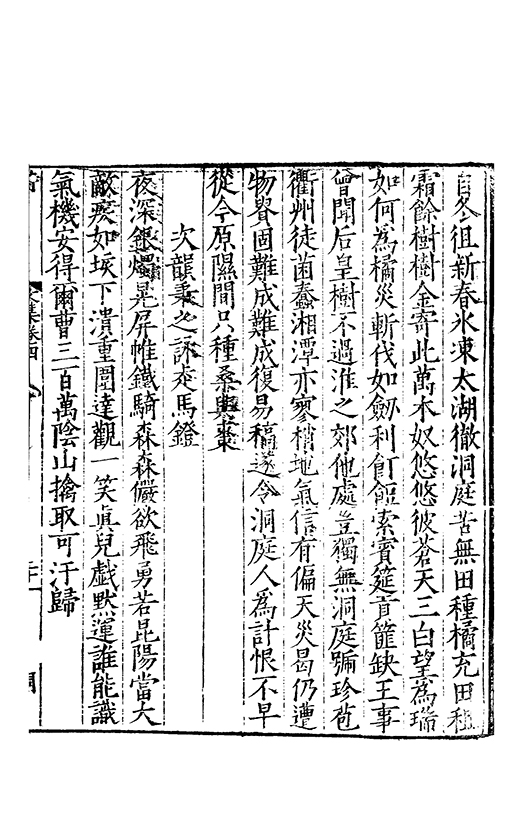 自冬徂新春氷凍太湖徹洞庭苦無田種橘充田租
霜餘樹樹金寄此萬木奴悠悠彼蒼天三白望爲瑞
如何爲橘災斬伐如劒利飣餖索賓筵苞篚缺王事
曾聞后皇樹不過淮之郊他處豈獨無洞庭騙珍苞
衢州徒菌蠢湘潭亦寥梢地氣信有偏天災曷仍遭
物眚固難成難成復易稿遂令洞庭人爲計恨不早
從今原隰間只種桑與棗
次韻秉之詠走馬鐙
夜深銀燭晃屏帷鐵騎森森儼欲飛勇若昆陽當大
敵疲如垓下潰重圍達觀一笑眞兒戲默運誰能識
氣機安得爾曹三百萬陰山擒取可汗歸
文集卷四